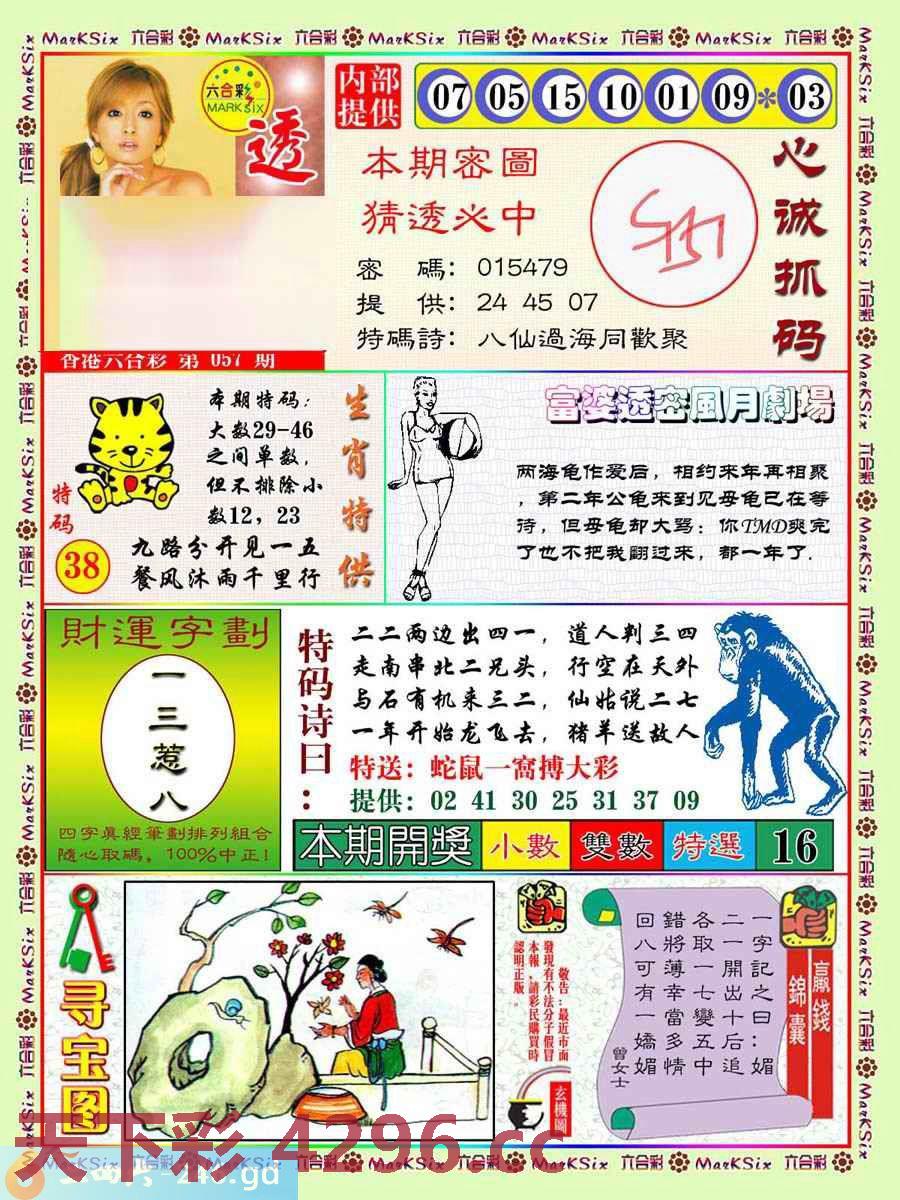 MarKSix 六合彩 MarKSix 六合彩 MarKSix 六合彩 MarKSix 六合彩 MarKSix 六合彩
六合彩
MARKSIX
透
内部
提供
07 05 15 10 01 09 * 03
本期密圖
猜透必中
密 碼: 015479
提 供: 24 45 07
特碼詩: 八仙過海同歡聚
心诚抓码
香港六合彩 第 057 期
特码
38
本期特码:
大数29-46
之间单数,
但不排除小
数12, 23
九路分开见一五
餐风沐雨千里行
生肖特供
富婆透密風月劇場
两海龟作爱后, 相约来年再相聚
, 第二年公龟来到见母龟已在等
待, 但母龟却大骂: 你TMD爽完
了也不把我翻过来, 都一年了.
財運字劃
一三惹八
四字真經筆劃排列組合
隨心取碼, 100%中正!
特码诗曰:
二二两边出四一, 道人判三四
走南串北二兄头, 行空在天外
与石有机来三二, 仙姑说二七
一年开始龙飞去, 猪羊送故人
特送: 蛇鼠一窩搏大彩
提供: 02 41 30 25 31 37 09
本期開獎 小數 雙數 特選 16
寻宝图
敬告:最近市面
發現有不法分子假冒
本報,請彩民購買時
認明正版。
玄機圖
一字記之曰:媚
二一開出十后追
各取一七變五中
錯將薄幸當多情
回八可有一嬌媚
曾女士
贏錢
錦囊
天下彩 4296.cc
MarKSix 六合彩 MarKSix 六合彩 MarKSix 六合彩 MarKSix